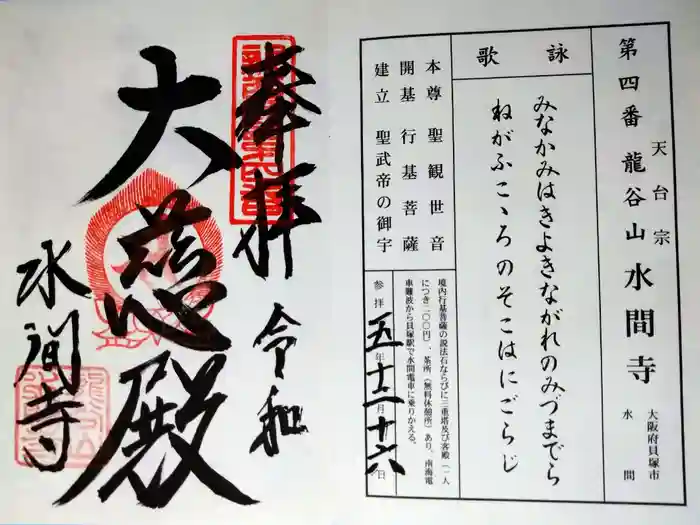 天台宗
第四番 龍谷山 水間寺
大阪府貝塚市
水間
詠歌
みなかみはきよきながれのみづまでら
ねがふこゝろのそこはにごらじ
本尊 聖観世音
開基 行基菩薩
建立 聖武帝の御宇
境内行基菩薩の説法石ならびに三重塔及び客殿(一人
につき二〇〇円)、茶所(無料休憩所)あり、南海電
車難波から貝塚駅で水間電車に乗りかえる。
参拝 五年十二月十六日
奉拝 令和
大慈殿
水間寺